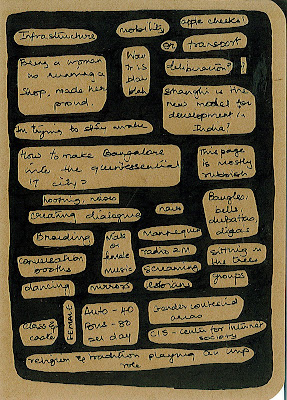 Infrastructure
mobility
apple cheeks!
or transport
Being a woman
is running a
shop, made her
proud.
how
this
blah
blah
deliberation?
Shanghai is the
new model for
development in
India?
In trying to stay awake
How to make Bangalore
into the quintessential
IT city?
This page
is mostly
rubbish
honking, noises
creating dialogue
nails
Bangles,
bells,
dupattas,
diyas
Branding
Male
or
female
music
Mannequins
radio 2M
screaming
sitting in
the trees
conversation
booths
groups
dancing
mirrors
lesbians
Class &
caste
FEMALE
Auto - 40
Bus - 80
per day
Gender contested
areas
CIS - Center for Internet
society
religion & tradition playing an imp
role